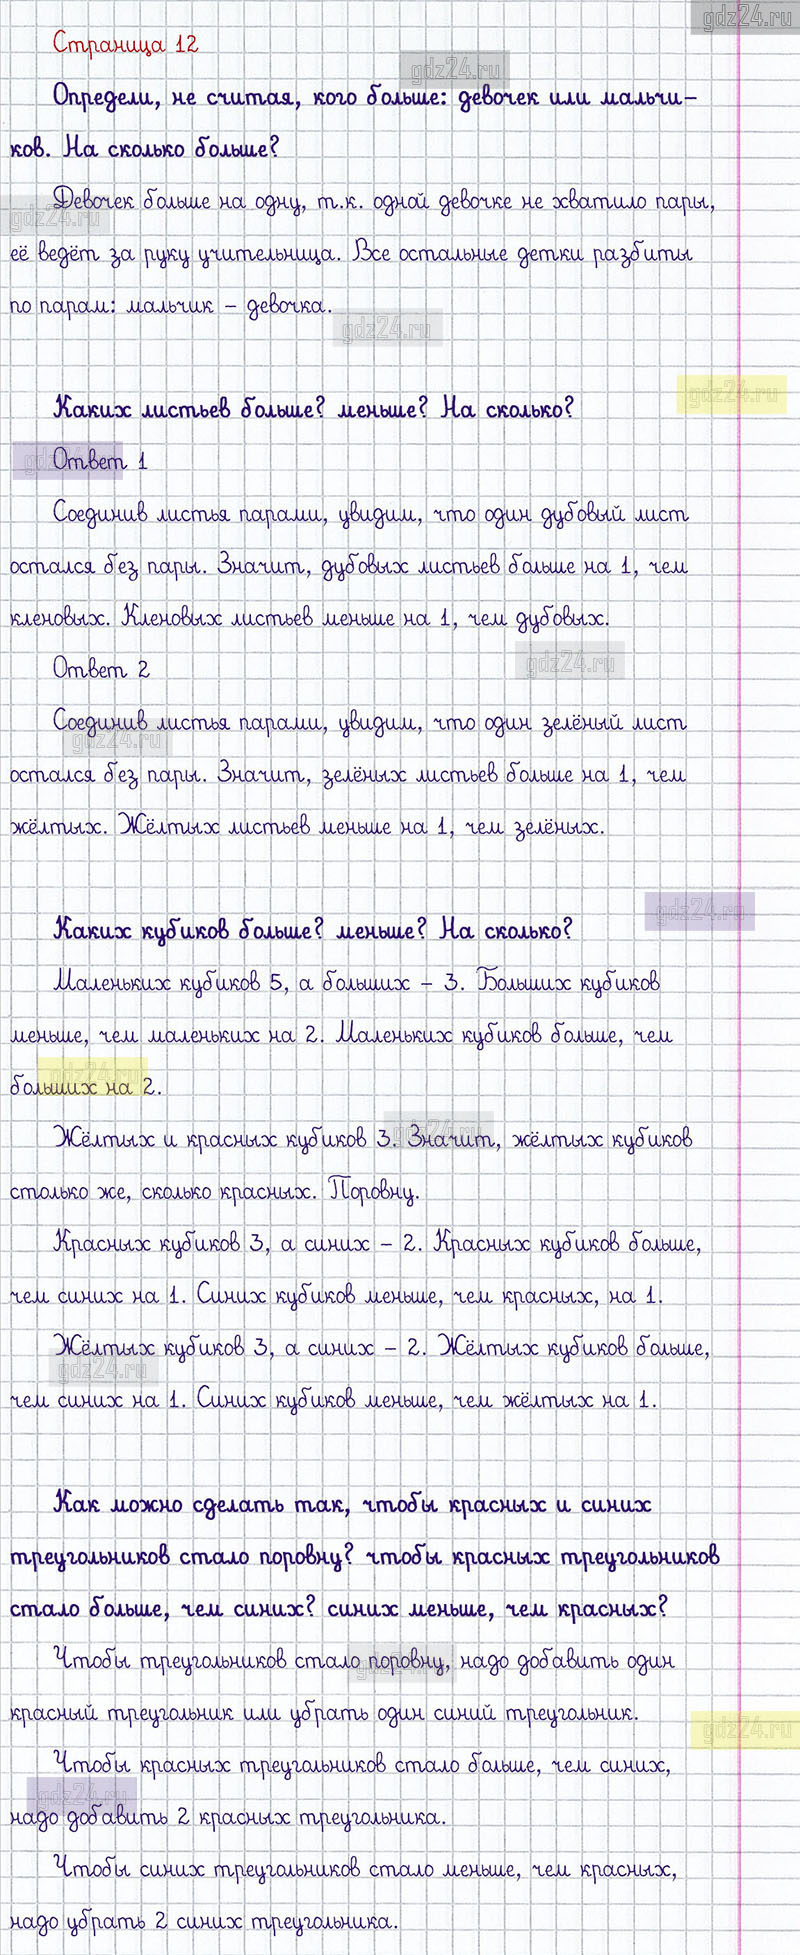 gdz24.ru
Страница 12
gdz24.ru
Определи, не считая, кого больше: девочек или мальчи-
ков. На сколько больше?
Девочек больше на одну, т.к. одной девочке не хватило пары,
gdz24.ru
её ведёт за руку учительница. Все остальные детки разбиты
по парам: мальчик – девочка.
gdz24.ru
gdz24.ru
Каких листьев больше? меньше? На сколько?
gdz24.ru
Ответ 1
Соединив листья парами, увидим, что один дубовый лист
остался без пары. Значит, дубовых листьев больше на 1, чем
кленовых. Кленовых листьев меньше на 1, чем дубовых.
gdz24.ru
Ответ 2
Соединив листья парами, увидим, что один зелёный лист
gdz24.ru
остался без пары. Значит, зелёных листьев больше на 1, чем
жёлтых. Жёлтых листьев меньше на 1, чем зелёных.
gdz24.ru
Каких кубиков больше? меньше? На сколько?
Маленьких кубиков 5, а больших – 3. Больших кубиков
меньше, чем маленьких на 2. Маленьких кубиков больше, чем
gdz24.ru
больших на 2.
gdz24.ru
Жёлтых и красных кубиков 3. Значит, жёлтых кубиков
столько же, сколько красных. Поровну.
Красных кубиков 3, а синих – 2. Красных кубиков больше,
чем синих на 1. Синих кубиков меньше, чем красных, на 1.
Жёлтых кубиков 3, а синих – 2. Жёлтых кубиков больше,
gdz24.ru
чем синих на 1. Синих кубиков меньше, чем жёлтых на 1.
Как можно сделать так, чтобы красных и синих
треугольников стало поровну? чтобы красных треугольников
стало больше, чем синих? синих меньше, чем красных?
Чтобы треугольников стало поровну, надо добавить один
gdz24.ru
красный треугольник или убрать один синий треугольник.
gdz24.ru
Чтобы красных треугольников стало больше, чем синих,
gdz24.ru
надо добавить 2 красных треугольника.
Чтобы синих треугольников стало меньше, чем красных,
надо убрать 2 синих треугольника.